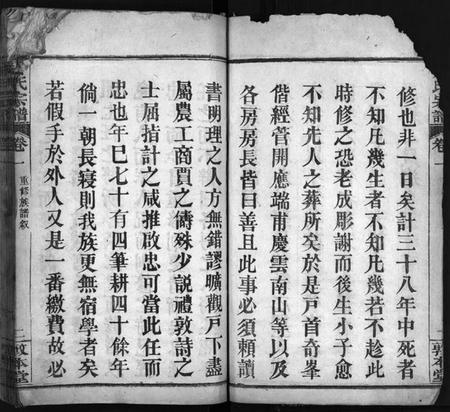 修也非一日矣計三十八年中死者
不知凡幾生者不知凡幾若不趁此
時修之恐老成彫謝而後生小子愈
不知先人之葬所矣於是戶首奇峯
偕經管開應端甫慶雲南山等以及
各房房長皆曰善且此事必須賴讀
書明理之人方無錯謬曠觀戶下盡
屬農工商賈之儔殊少說禮敦詩之
士屈指計之咸推啟忠可當此任而
忠也年已七十有四筆耕四十餘年
倘一朝長寢則我族更無宿學者矣
若假手於外人又是一番繳費故必
氏宗譜
卷一
重修族譜叙
二
敦本堂
氏宗譜
卷一
敦本堂